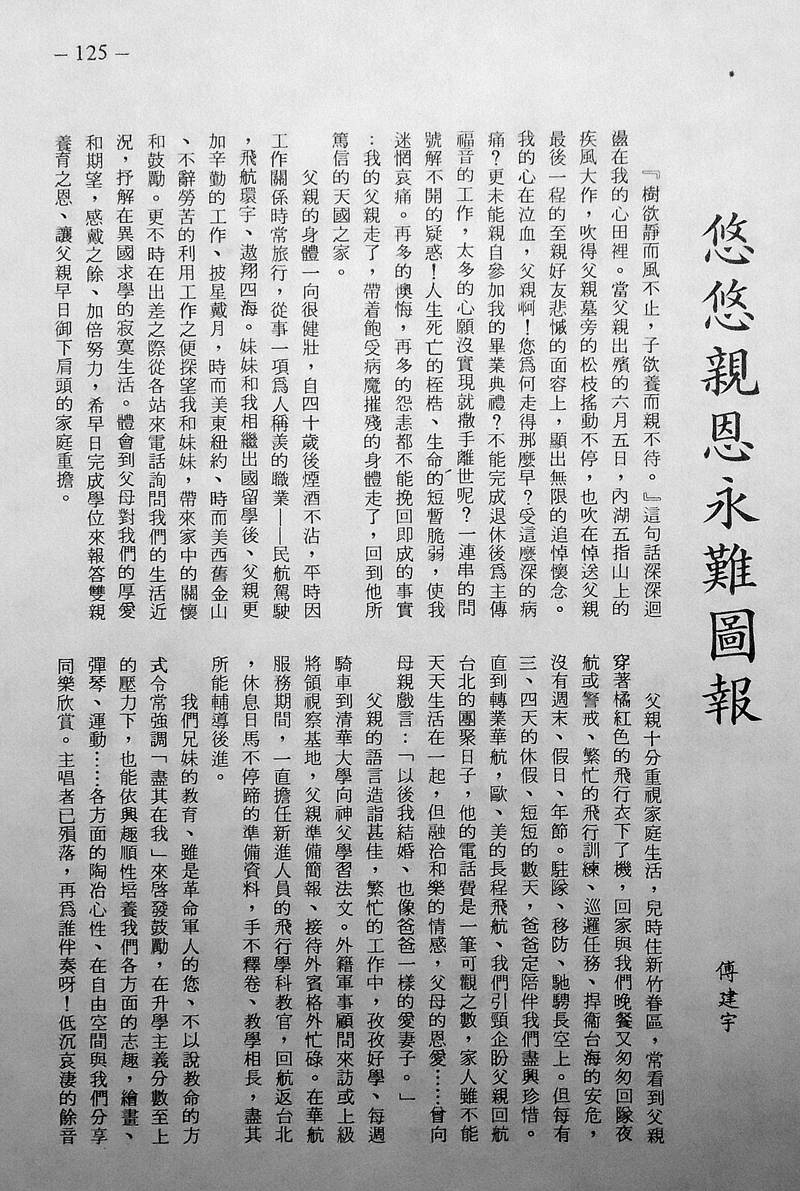 — 125 —
悠悠親恩永難圖報
傅建宇
『樹欲靜而風不止，子欲養而親不待。』這句話深深迴
盪在我的心田裡。當父親出殯的六月五日，內湖五指山上的
疾風大作，吹得父親墓旁的松枝搖動不停，也吹在悼送父親
最後一程的至親好友悲慽的面容上，顯出無限的追悼懷念。
我的心在泣血，父親啊！您爲何走得那麼早？受這麼深的病
痛？更未能親自參加我的畢業典禮？不能完成退休後爲主傳
福音的工作，太多的心願沒實現就撒手離世呢？一連串的問
號解不開的疑惑！人生死亡的桎梏、生命的短暫脆弱，使我
迷惘哀痛。再多的懊悔，再多的怨恚都不能挽回即成的事實
：我的父親走了，帶着飽受病魔摧殘的身體走了，回到他所
篤信的天國之家。
父親的身體一向很健壯，自四十歲後煙酒不沾，平時因
工作關係時常旅行，從事一項爲人稱羨的職業——民航駕駛
，飛航環宇、遨翔四海。妹妹和我相繼出國留學後、父親更
加辛勤的工作、披星戴月，時而美東紐約、時而美西舊金山
、不辭勞苦的利用工作之便探望我和妹妹，帶來家中的關懷
和鼓勵。更不時在出差之際從各站來電話詢問我們的生活近
況，抒解在異國求學的寂寞生活。體會到父母對我們的厚愛
和期望，感戴之餘、加倍努力，希早日完成學位來報答雙親
養育之恩、讓父親早日御下肩頭的家庭重擔。
父親十分重視家庭生活，兒時住新竹眷區，常看到父親
穿著橘紅色的飛行衣下了機，回家與我們晚餐又匆匆回隊夜
航或警戒、繁忙的飛行訓練、巡邏任務、捍衞台海的安危，
沒有週末、假日、年節。駐隊、移防、馳騁長空上。但每有
三、四天的休假、短短的數天，爸爸定陪伴我們盡興珍惜。
直到轉業華航，歐、美的長程飛航、我們引頸企盼父親回航
台北的團聚日子，他的電話費是一筆可觀之數，家人雖不能
天天生活在一起，但融洽和樂的情感，父母的恩愛……曾向
母親戲言：「以後我結婚、也像爸爸一樣的愛妻子。」
父親的語言造詣甚佳，繁忙的工作中，孜孜好學、每週
騎車到清華大學向神父學習法文。外籍軍事顧問來訪或上級
將領視察基地，父親準備簡報、接待外賓格外忙碌。在華航
服務期間，一直擔任新進人員的飛行學科教官，回航返台北
，休息日馬不停蹄的準備資料，手不釋卷、教學相長，盡其
所能輔導後進。
我們兄妹的教育、雖是革命軍人的您、不以說教命的方
式令常強調「盡其在我」來啓發鼓勵，在升學主義分數至上
的壓力下，也能依興趣順性培養我們各方面的志趣，繪畫、
彈琴、運動……各方面的陶冶心性、在自由空間與我們分享
同樂欣賞。主唱者已殞落，再爲誰伴奏呀！低沉哀淒的餘音